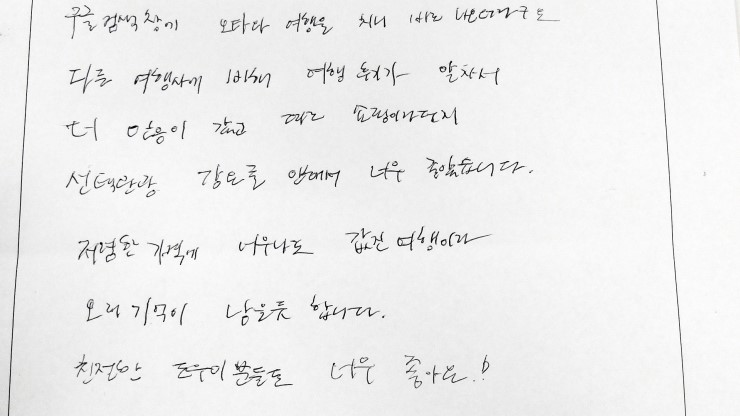 구글 검색창에 오타다 여행을 치니 바로 나오더라구요
다른 여행사에 비해 여행 동기가 알차서
더 믿음이 갔고 따로 쇼핑이라던지
선택관광 강요를 안해서 너무 좋았습니다.
저렴한 가격에 너무나도 값진 여행이라
오래 기억이 남을듯 합니다.
친절한 도우미분들도 너무 좋아요!!